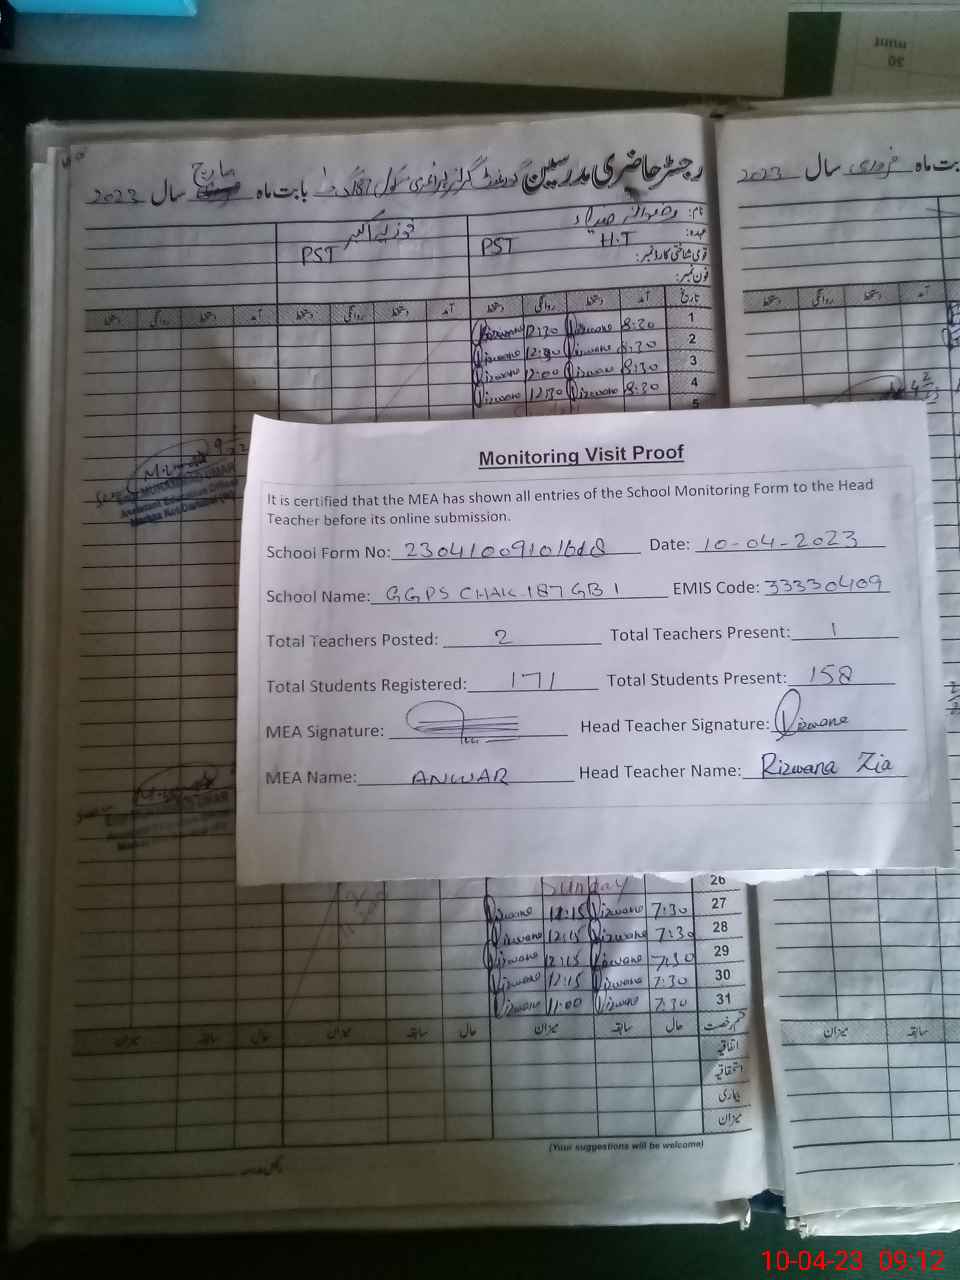 رجسٹر حاضری مدرسین گورنمنٹ گرلز پرائمری سکول 187 گ ب بابت ماہ مارچ سال 2023
بابت ماہ فروری سال 2023
نام:
عہدہ: H.T PST
PST
قومی شناختی کارڈ نمبر:
فون نمبر:
تاریخ آمد دستخط روانگی دستخط آمد دستخط روانگی دستخط آمد دستخط روانگی دستخط
1 8:30 Rizwana 12:30 Rizwana
2 8:30 Rizwana Rizwana
3 8:30 Rizwana 12:00 Rizwana
4 8:30 Rizwana 12:30 Rizwana
5
Monitoring Visit Proof
It is certified that the MEA has shown all entries of the School Monitoring Form to the Head
Teacher before its online submission.
School Form No: Date: 10-04-2023
School Name: GGPS CHAK 187 GB 1 EMIS Code: 33330409
Total Teachers Posted: 2 Total Teachers Present: 1
Total Students Registered: 171 Total Students Present: 158
MEA Signature: Head Teacher Signature: Rizwana
MEA Name: ANWAR Head Teacher Name: Rizwana Zia
26 Sunday
27 7:30 Rizwana 12:15 Rizwana
28 7:30 Rizwana 12:15 Rizwana
29 7:30 Rizwana 12:15 Rizwana
30 7:30 Rizwana 12:15 Rizwana
31 7:30 Rizwana 11:00 Rizwana
قسم رخصت حال سابقہ میزان حال سابقہ میزان حال سابقہ میزان
اتفاقیہ
استحقاقیہ
بیماری
میزان
(Your suggestions will be welcome)
10-04-23 09:12